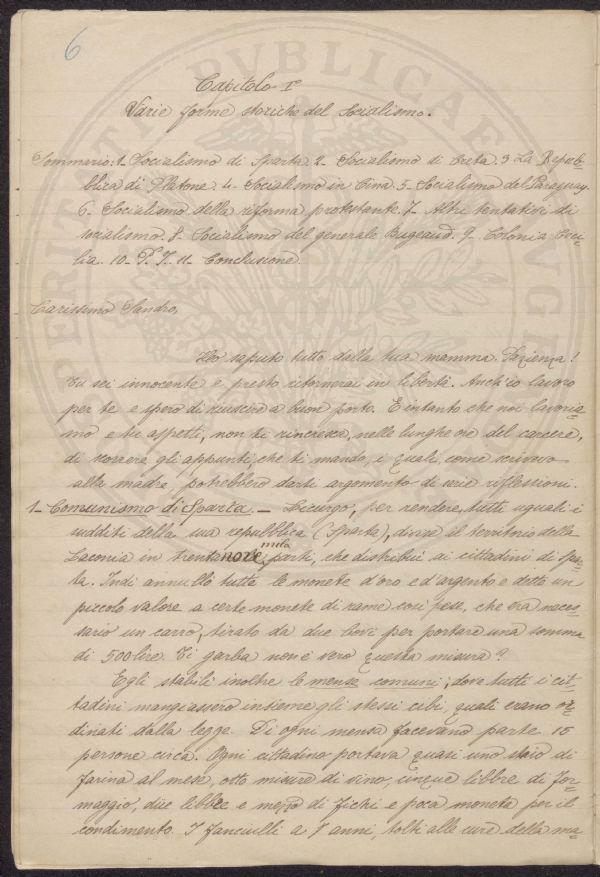 6
Capitolo I°
Varie forme storiche del Socialismo.
Sommario: 1- Socialismo di Sparta 2- Socialismo di Creta. 3 La Repub-
blica di Platone. 4- Socialismo in Cina. 5- Socialismo del Paraguay.
6- Socialismo della riforma protestante. 7- Altri tentativi di
socialismo. 8- Socialismo del generale Bugeaud. 9- Colonia Ceci-
lia. 10- P. I. 11- Conclusione
Carissimo Sandro,
Ho saputo tutto dalla tua mamma. Pazienza!
Tu sei innocente e presto ritornerai in libertà. Anch'io lavoro
per te e spero di riuscire a buon porto. E intanto che noi lavoria-
mo e tu aspetti, non ti rincresca, nelle lunghe ore del carcere,
di scorrere gli appunti, che ti mando, i quali, come scrivevo
alla madre, potrebbero darti argomento di serie riflessioni.
1- Comunismo di Sparta. - Licurgo, per rendere tutti uguali i
sudditi della sua repubblica (Sparta), divise il territorio della
Laconia in trentanove mila parti, che distribuì ai cittadini di Spar-
ta. Indi annullò tutte le monete d'oro e d'argento e dette un
piccolo valore a certe monete di rame così pese, che era neces-
sario un carro, tirato da due bovi per portare una somma
di 500 lire. Ti garba non è vero questa misura?
Egli stabilì inoltre le mense comuni, dove tutti i cit-
tadini mangiassero insieme gli stessi cibi, quali erano or-
dinati dalla legge. Di ogni mensa facevano parte 15
persone circa. Ogni cittadino portava quasi uno staio di
farina al mese, otto misure di vino, cinque libbre di for-
maggio, due libbre e mezzo di fichi e poca moneta per il
condimento. I fanciulli a 7 anni, tolti alle cure della ma-